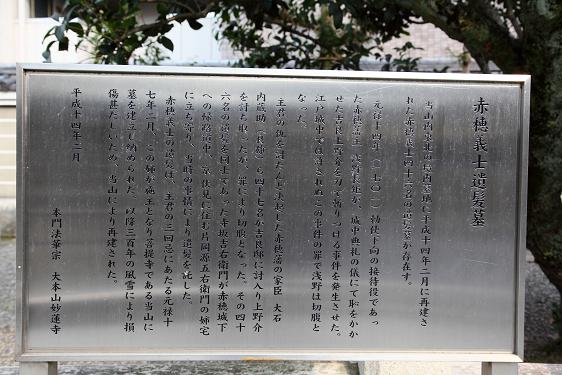 赤穂義士遺髪墓
当山内東北の境内墓域に平成十四年二月に再建さ
れた赤穂義士四十六名の遺髪墓が存在す。
元禄十四年(一七〇一)勅使下向の接待役であっ
た赤穂藩主 浅野長矩が、城中典礼の儀にて恥をかか
せた吉良上野介を刀で斬りつける事件を発生させた。
江戸城中では許されぬこの事件の罪で浅野は切腹と
なった。
主君の仇を討たんと決心した赤穂藩の家臣 大石
内蔵助(良雄)ら四十七名が吉良邸に討入り上野介
を討ち取ったが、罪により切腹となった。その四十
六名の遺髪を同士であった寺坂吉右衛門が赤穂城下
への帰路道中、京伏見に住む片岡源五右衛門の姉宅
に立ち寄り、当時の事情により遺髪を託した。
赤穂義士の遺髪は、主君の三回忌にあたる元禄十
七年二月、この姉が施主となり菩提寺である当山に
墓を建立し納められた。以降三百年の風雪により損
傷甚だしいため、当山により再建された。
平成十四年二月
本門法華宗 大本山妙蓮寺